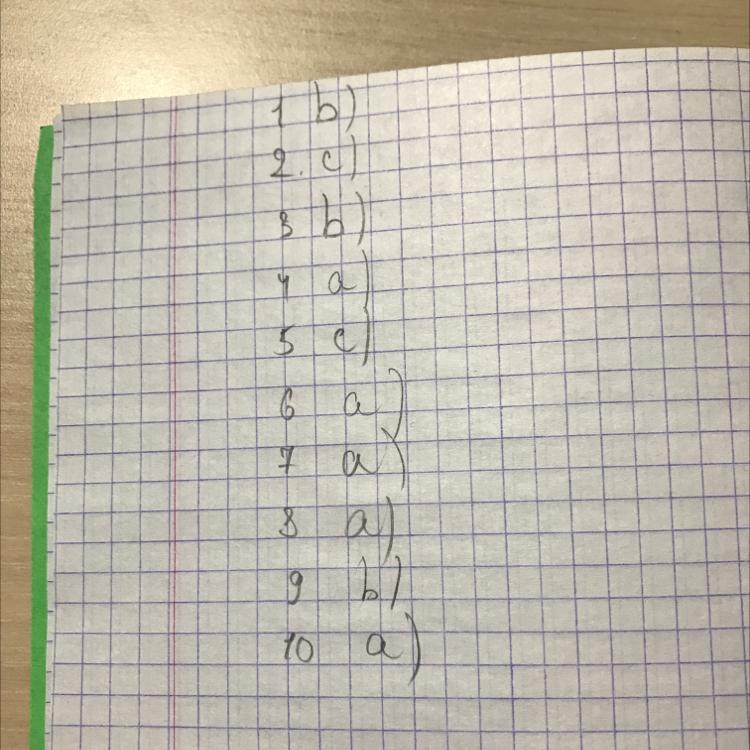 1 b)
2. c)
3 b)
4 a)
5 c)
6 a)
7 a)
8 a)
9 b)
10 a)